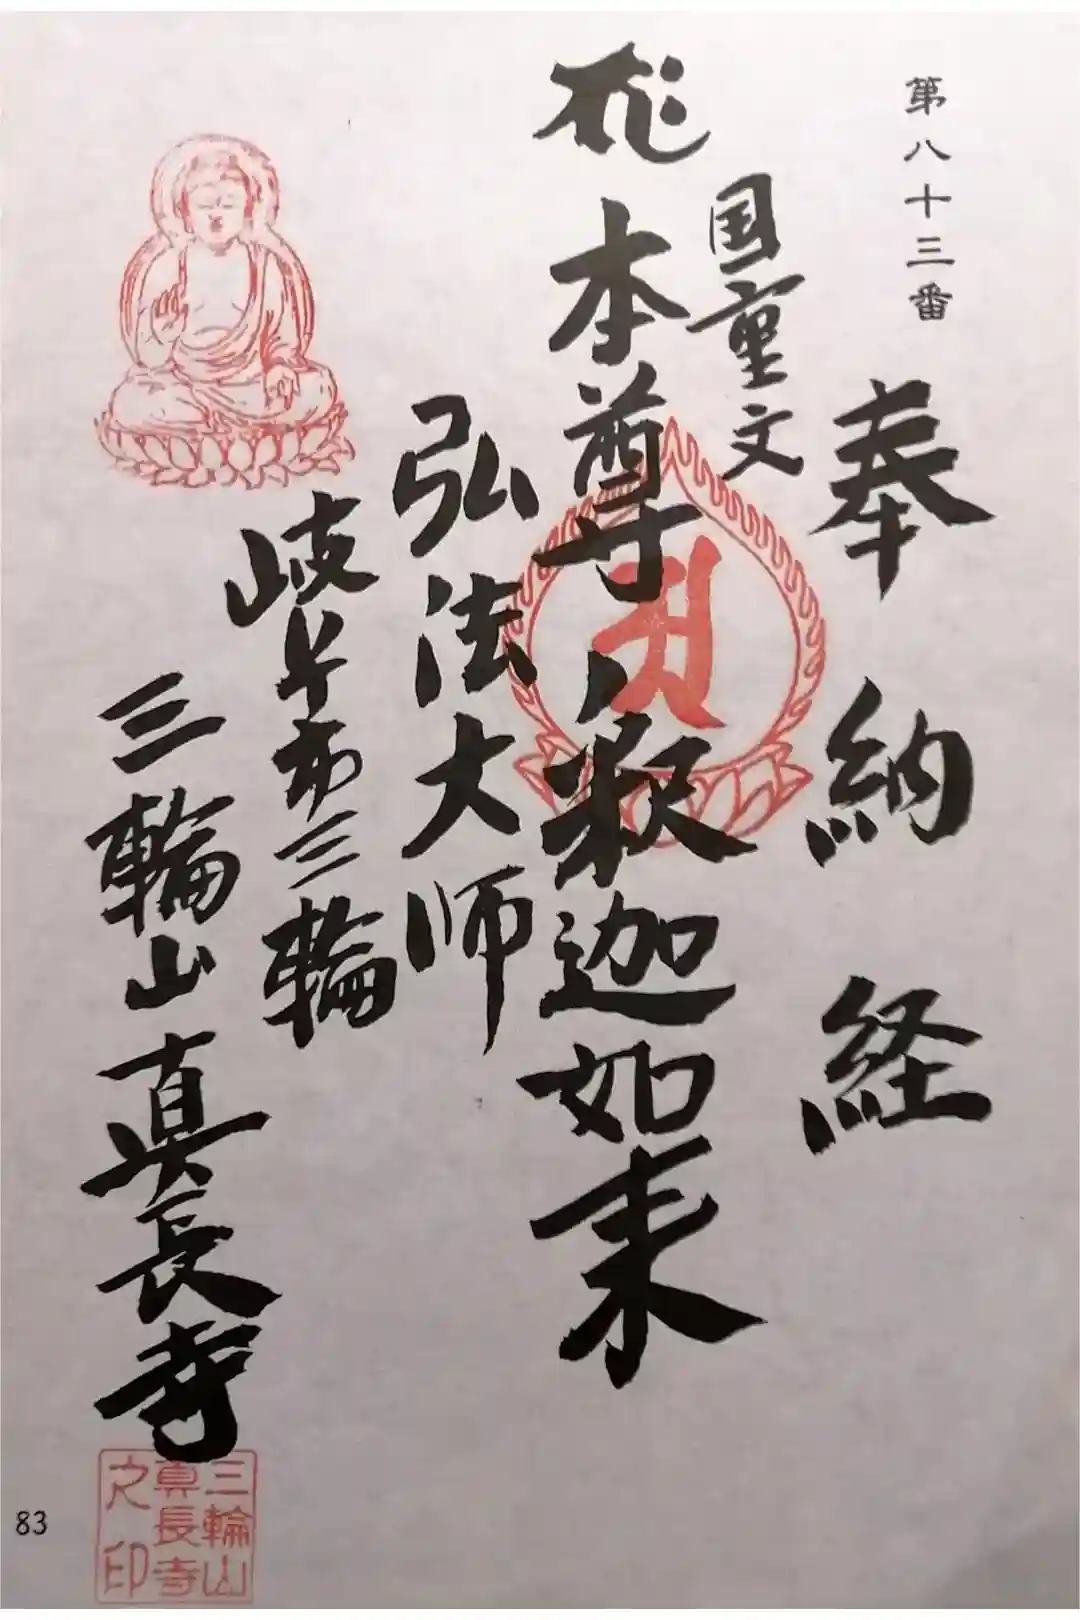 第八十三番
奉納経
国重文
本尊釈迦如来
弘法大師
岐阜市三輪
三輪山真長寺
三輪山
真長寺
之印
83